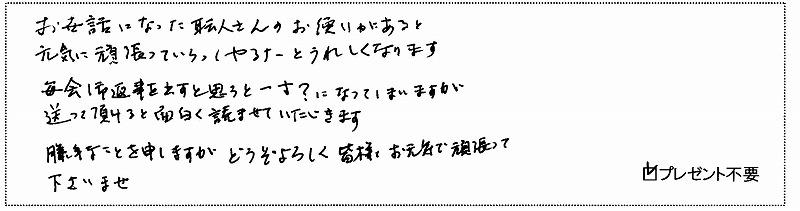 お世話になった職人さんのお便りがあると
元気に頑張っていらっしゃるナーとうれしくなります
毎会 御返事を出すと思うと一寸?になってしまいますが
送って頂けると面白く読ませていただきます
勝手なことを申しますが どうぞよろしく 皆様 お元気で頑張って
下さいませ
プレゼント不要